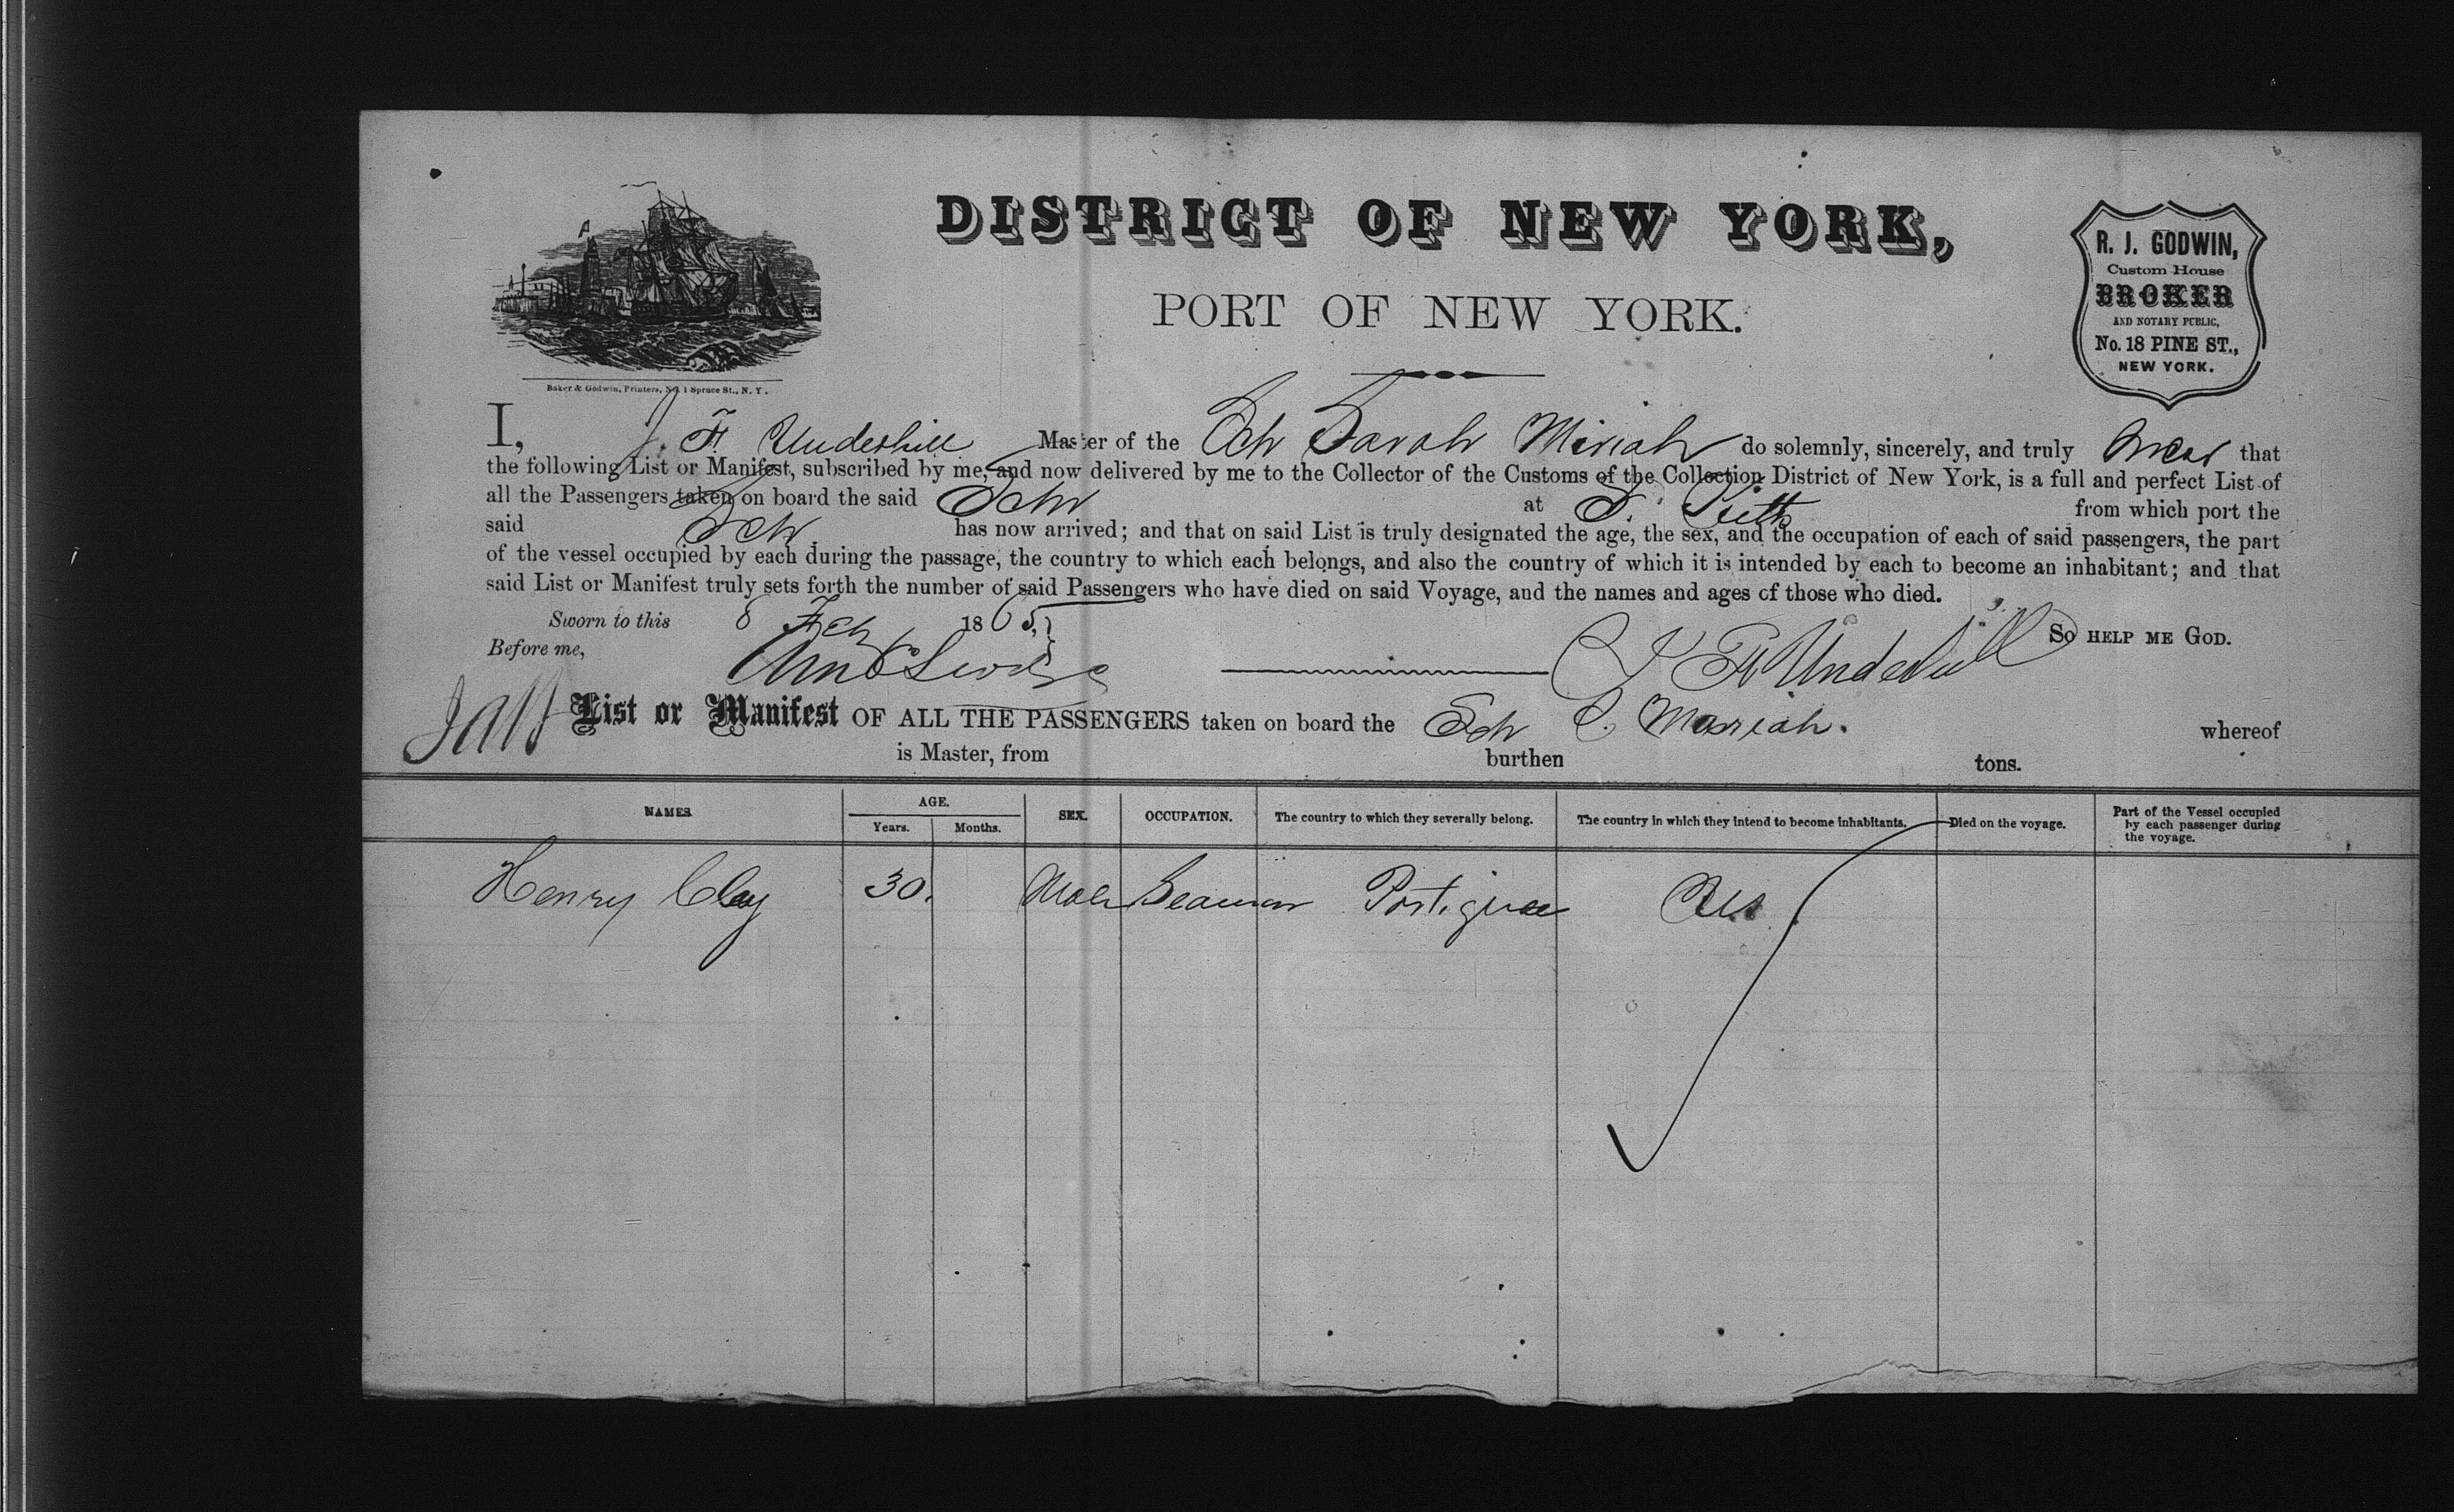 DISTRICT OF NEW YORK,
PORT OF NEW YORK.
R. J. GODWIN,
Custom House
BROKER
AND NOTARY PUBLIC,
No. 18 PINE ST.,
NEW YORK.
Baker & Godwin, Printers, No. 1 Spruce St., N. Y.
I, J. H. Underhill Master of the Sch Sarah Miriah do solemnly, sincerely, and truly swear that
the following List or Manifest, subscribed by me, and now delivered by me to the Collector of the Customs of the Collection District of New York, is a full and perfect List of
all the Passengers taken on board the said Schr at S. Kitts from which port the
said Schr. has now arrived; and that on said List is truly designated the age, the sex, and the occupation of each of said passengers, the part
of the vessel occupied by each during the passage, the country to which each belongs, and also the country of which it is intended by each to become an inhabitant; and that
said List or Manifest truly sets forth the number of said Passengers who have died on said Voyage, and the names and ages of those who died.
Sworn to this 8 Feb 1865, So HELP ME GOD.
Before me, J H Underhill
List or Manifest OF ALL THE PASSENGERS taken on board the Sch S. Mariah. whereof
is Master, from burthen tons.
NAMES. AGE. SEX. OCCUPATION. The country to which they severally belong. The country in which they intend to become inhabitants. Died on the voyage. Part of the Vessel occupied by each passenger during the voyage.
Years. Months.
Henry Clay 30. Male Seaman Portiguee US